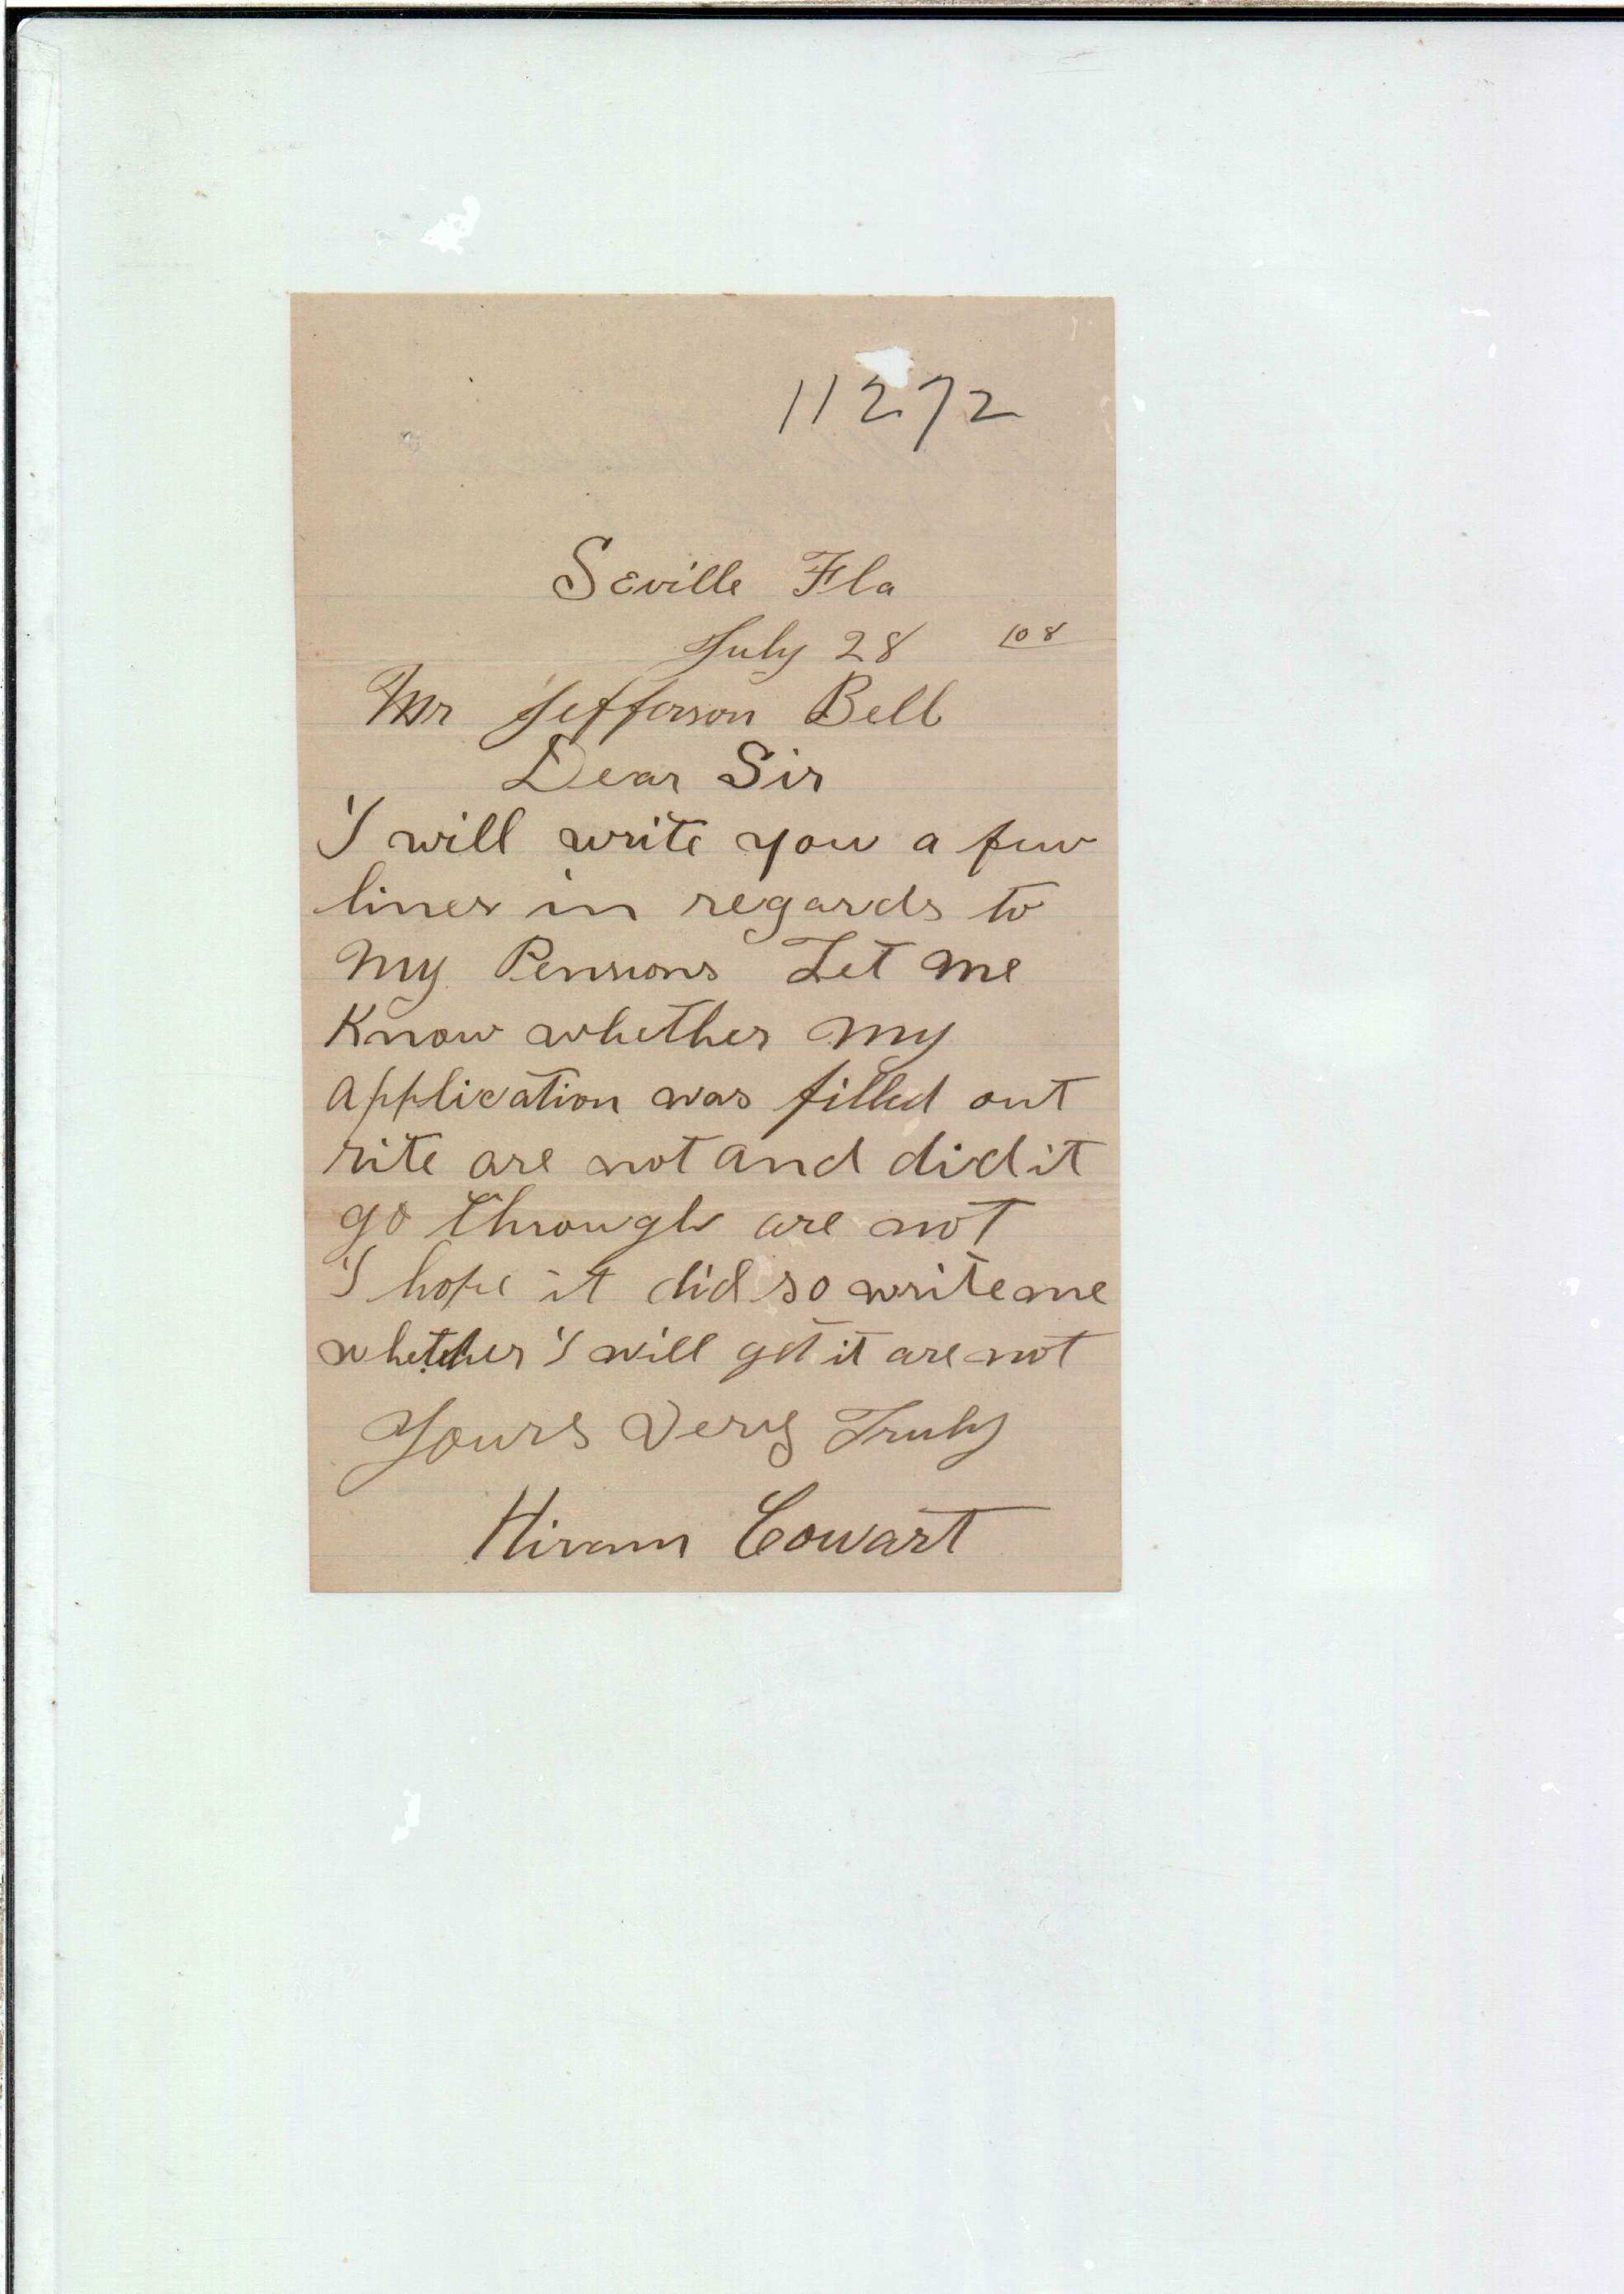 11272
Seville Fla
July 28 /08
Mr Jefferson Bell
Dear Sir
I will write you a few
lines in regards to
My Pensions Let me
Know whether my
application was filled out
rite are not and did it
go through are not
I hope it did so write me
whether I will get it are not
Yours Very Truly
Hiram Cowart